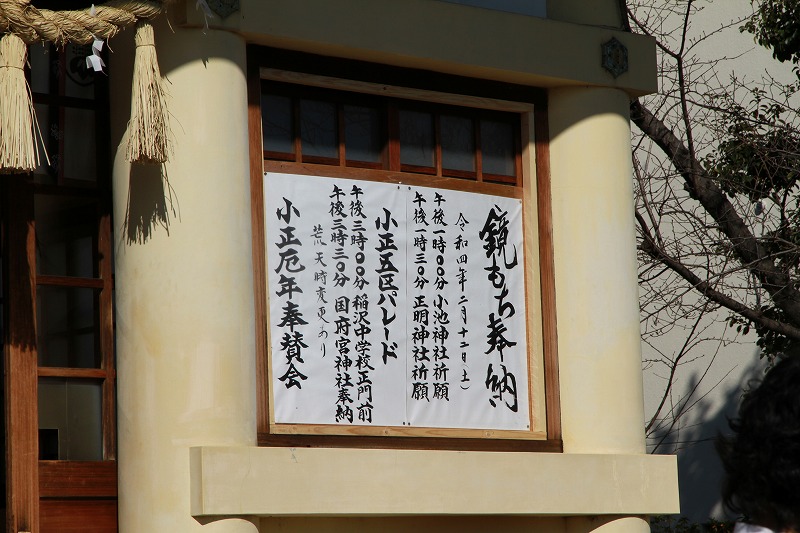 鏡もち奉納
令和四年二月十二日(土)
午後一時〇〇分小池神社祈願
午後一時三〇分正明神社祈願
小正五区パレード
午後三時〇〇分稲沢中学校正門前
午後三時三〇分国府宮神社奉納
荒天時変更あり
小正厄年奉賛会